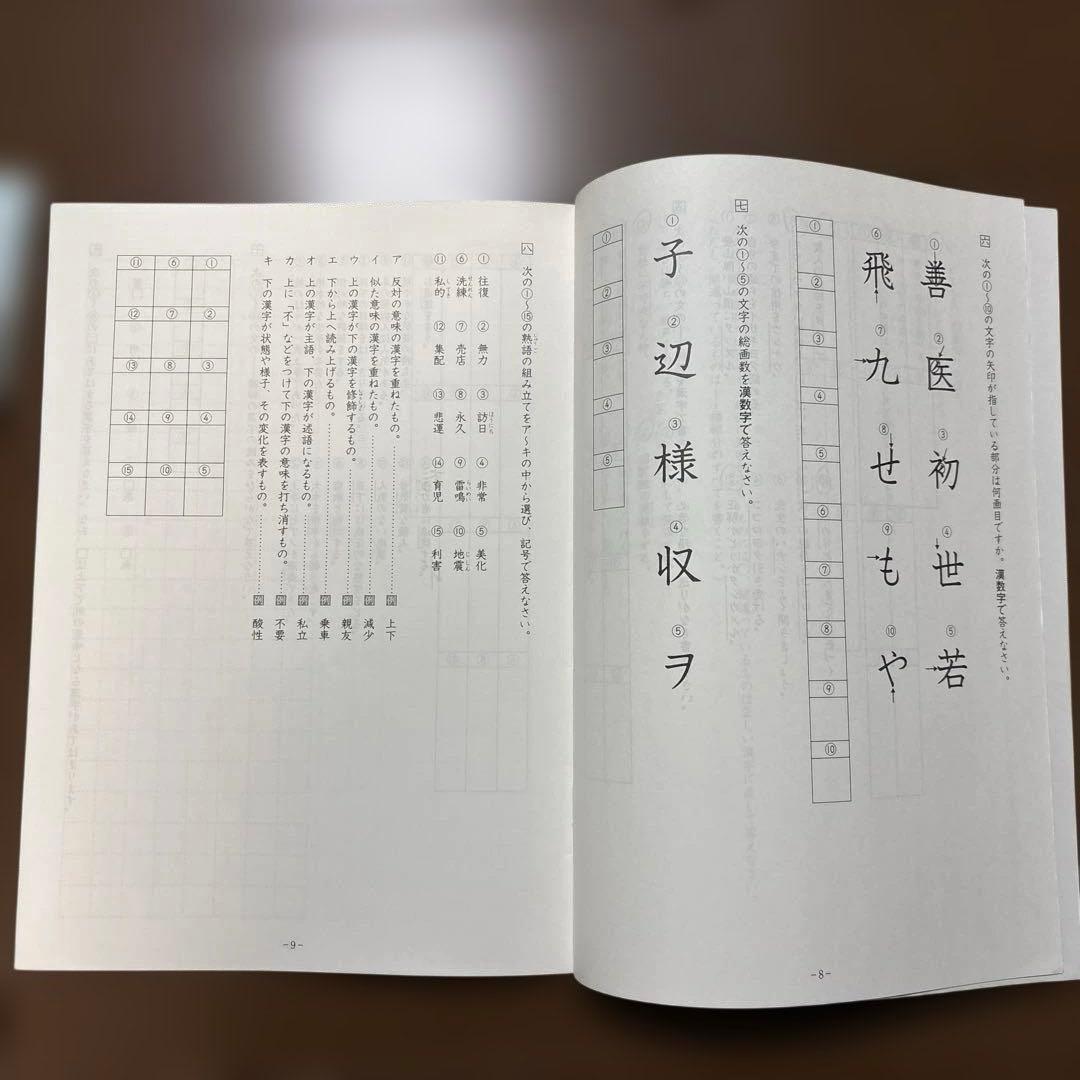 六 次の①〜⑩の文字の矢印が指している部分は何画目ですか。漢数字で答えなさい。
① 善 ② 医 ③ 初 ④ 世 ⑤ 若
⑥ 飛 ⑦ 九 ⑧ せ ⑨ も ⑩ や
① ② ③ ④ ⑤ ⑥ ⑦ ⑧ ⑨ ⑩
七 次の①〜⑤の文字の総画数を漢数字で答えなさい。
① 子 ② 辺 ③ 様 ④ 収 ⑤ ヲ
① ② ③ ④ ⑤
-8-
八 次の①〜⑮の熟語の組み立てをア〜キの中から選び、記号で答えなさい。
① 往復 ② 無力 ③ 訪日 ④ 非常 ⑤ 美化
⑥ 洗練 ⑦ 売店 ⑧ 永久 ⑨ 雷鳴 ⑩ 地震
⑪ 私的 ⑫ 集配 ⑬ 悲運 ⑭ 育児 ⑮ 利害
ア 反対の意味の漢字を重ねたもの。 例 上下
イ 似た意味の漢字を重ねたもの。 例 減少
ウ 上の漢字が下の漢字を修飾するもの。 例 親友
エ 下から上へ読み上げるもの。 例 乗車
オ 上の漢字が主語、下の漢字が述語になるもの。 例 私立
カ 上に「不」などをつけて下の漢字の意味を打ち消すもの。 例 不要
キ 下の漢字が状態や様子、その変化を表すもの。 例 酸性
① ② ③ ④ ⑤
⑥ ⑦ ⑧ ⑨ ⑩
⑪ ⑫ ⑬ ⑭ ⑮
-9-